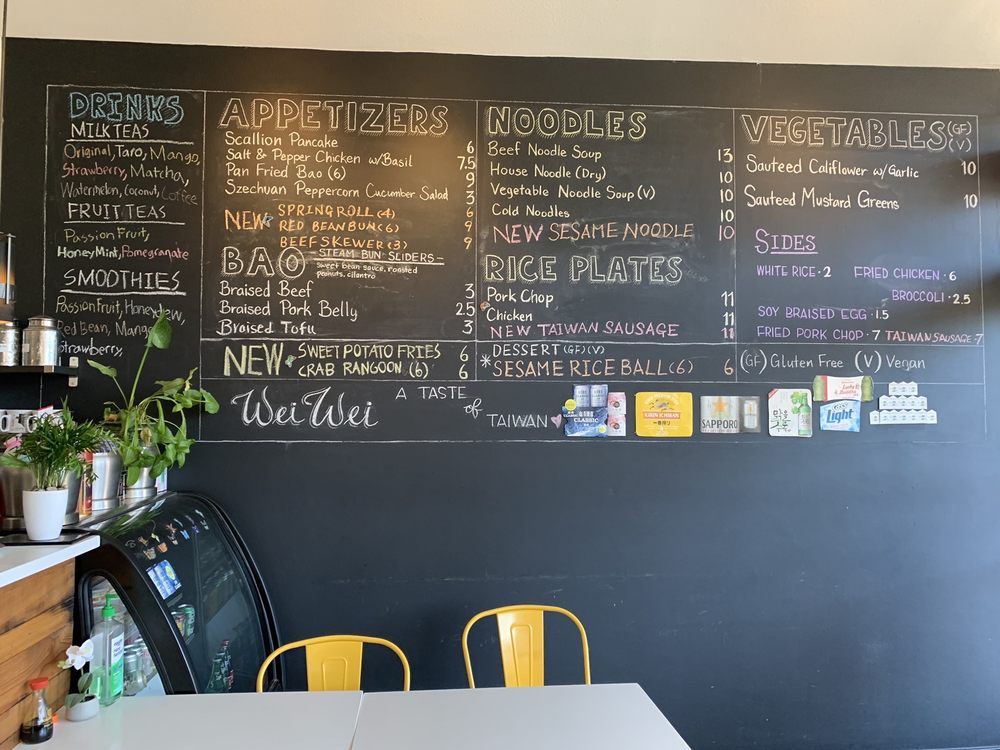 DRINKS
MILK TEAS
Original, Taro, Mango,
Strawberry, Matcha,
Watermelon, Coconut, Coffee
FRUIT TEAS
Passion Fruit,
Honey Mint, Pomegranate
SMOOTHIES
Passion Fruit, Honeydew,
Red Bean, Mango
Strawberry,
APPETIZERS
Scallion Pancake 6
Salt & Pepper Chicken w/Basil 7.5
Pan Fried Bao (6) 9
Szechuan Peppercorn Cucumber Salad 3
NEW SPRING ROLL (4) 6
RED BEAN BUN (6) 9
BEEF SKEWER (3) 9
BAO STEAM BUN SLIDERS-
sweet bean sauce, roasted
peanuts, cilantro
Braised Beef 3
Braised Pork Belly 2.5
Braised Tofu 3
NEW SWEET POTATO FRIES 6
CRAB RANGOON (6) 6
NOODLES
Beef Noodle Soup 13
House Noodle (Dry) 10
Vegetable Noodle Soup (V) 10
Cold Noodles 10
NEW SESAME NOODLE 10
RICE PLATES
Pork Chop 11
Chicken 11
NEW TAIWAN SAUSAGE 11
DESSERT (GF)(V)
*SESAME RICE BALL (6) 6
VEGETABLES (GF) (V)
Sauteed Califlower w/Garlic 10
Sauteed Mustard Greens 10
SIDES
WHITE RICE • 2 FRIED CHICKEN • 6
BROCCOLI • 2.5
SOY BRAISED EGG • 1.5
FRIED PORK CHOP • 7 TAIWAN SAUSAGE • 7
(GF) Gluten Free (V) Vegan
Wei Wei A TASTE of TAIWAN
CLASSIC
KIRIN ICHIBAN
SAPPORO
Light